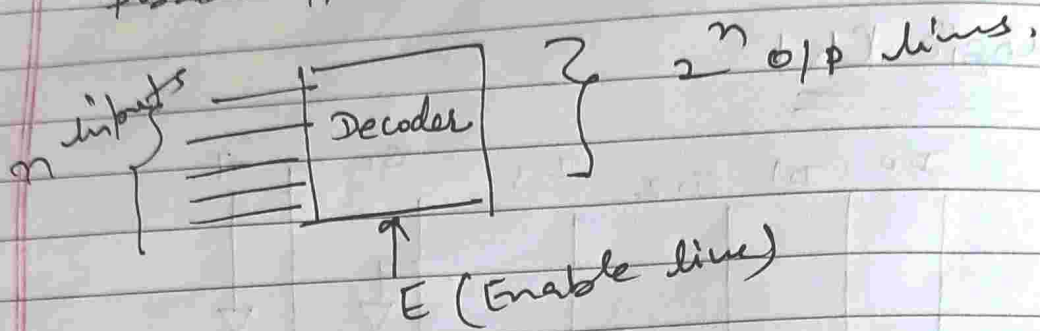 n inputs
Decoder
2^n o/p lines.
E (Enable line)